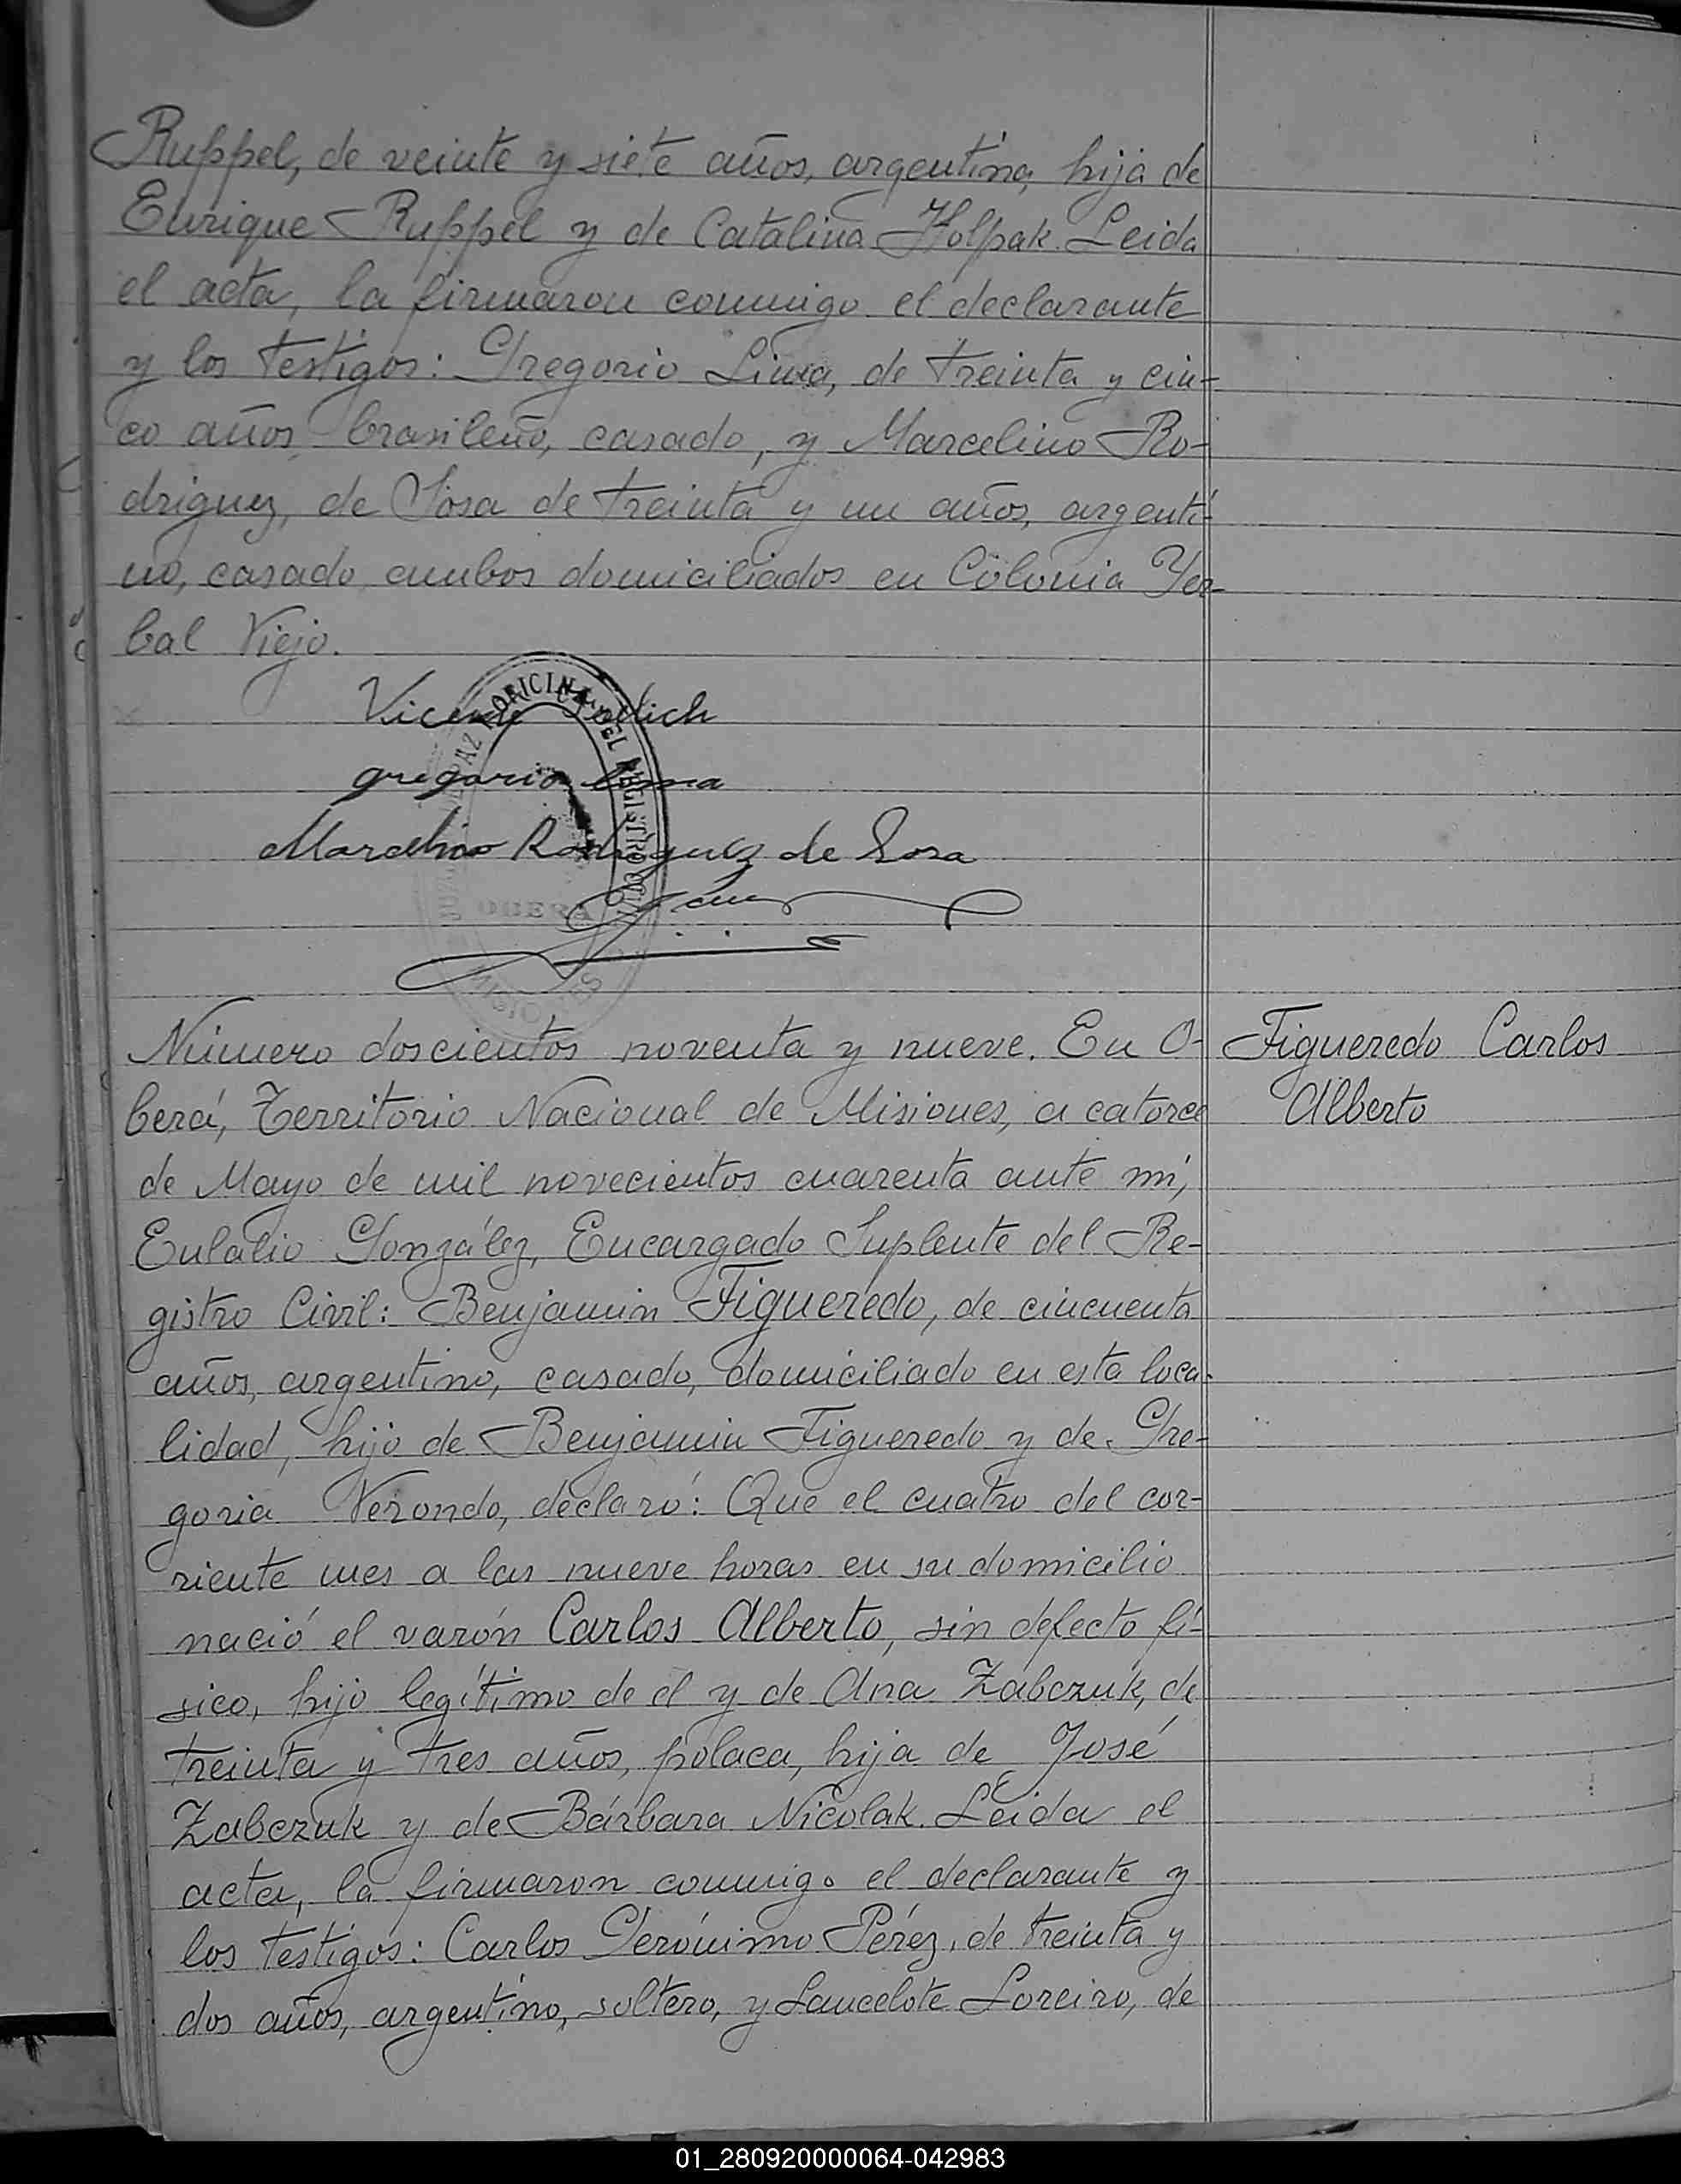 Ruppel, de veinte y siete años, argentina, hija de
Enrique Ruppel y de Catalina Holpak. Leida
el acta, la firmaron conmigo el declarante
y los testigos: Gregorio Lima, de treinta y cin-
co años, brasileño, casado, y Marcelino Ro-
driguez, de Sosa de treinta y un años, argenti-
no, casado ambos domiciliados en Colonia Yer-
bal Viejo.
Vicente
gregorio Lima
Marcelino Rodriguez de Sosa
OFICINA DEL REGISTRO CIVIL
PAZ
OBERA
MISIONES
Número doscientos noventa y nueve. En O-
berá, Territorio Nacional de Misiones, a catorce
de Mayo de mil novecientos cuarenta ante mí,
Eulalio González, Encargado Suplente del Re-
gistro Civil: Benjamin Figueredo, de cincuenta
años, argentino, casado, domiciliado en esta loca-
lidad, hijo de Benjamin Figueredo y de Gre-
goria Verondo, declaró: Que el cuatro del cor-
riente mes a las nueve horas en su domicilio
nació el varón Carlos Alberto, sin defecto fí-
sico, hijo legítimo de el y de Ana Zabczuk, de
treinta y tres años, polaca, hija de José
Zabczuk y de Bárbara Nicolak. Leida el
acta, la firmaron conmigo el declarante y
los testigos: Carlos Gerónimo Pérez, de treinta y
dos años, argentino, soltero, y Lancelote Loreiro, de
Figueredo Carlos
Alberto
01_280920000064-042983